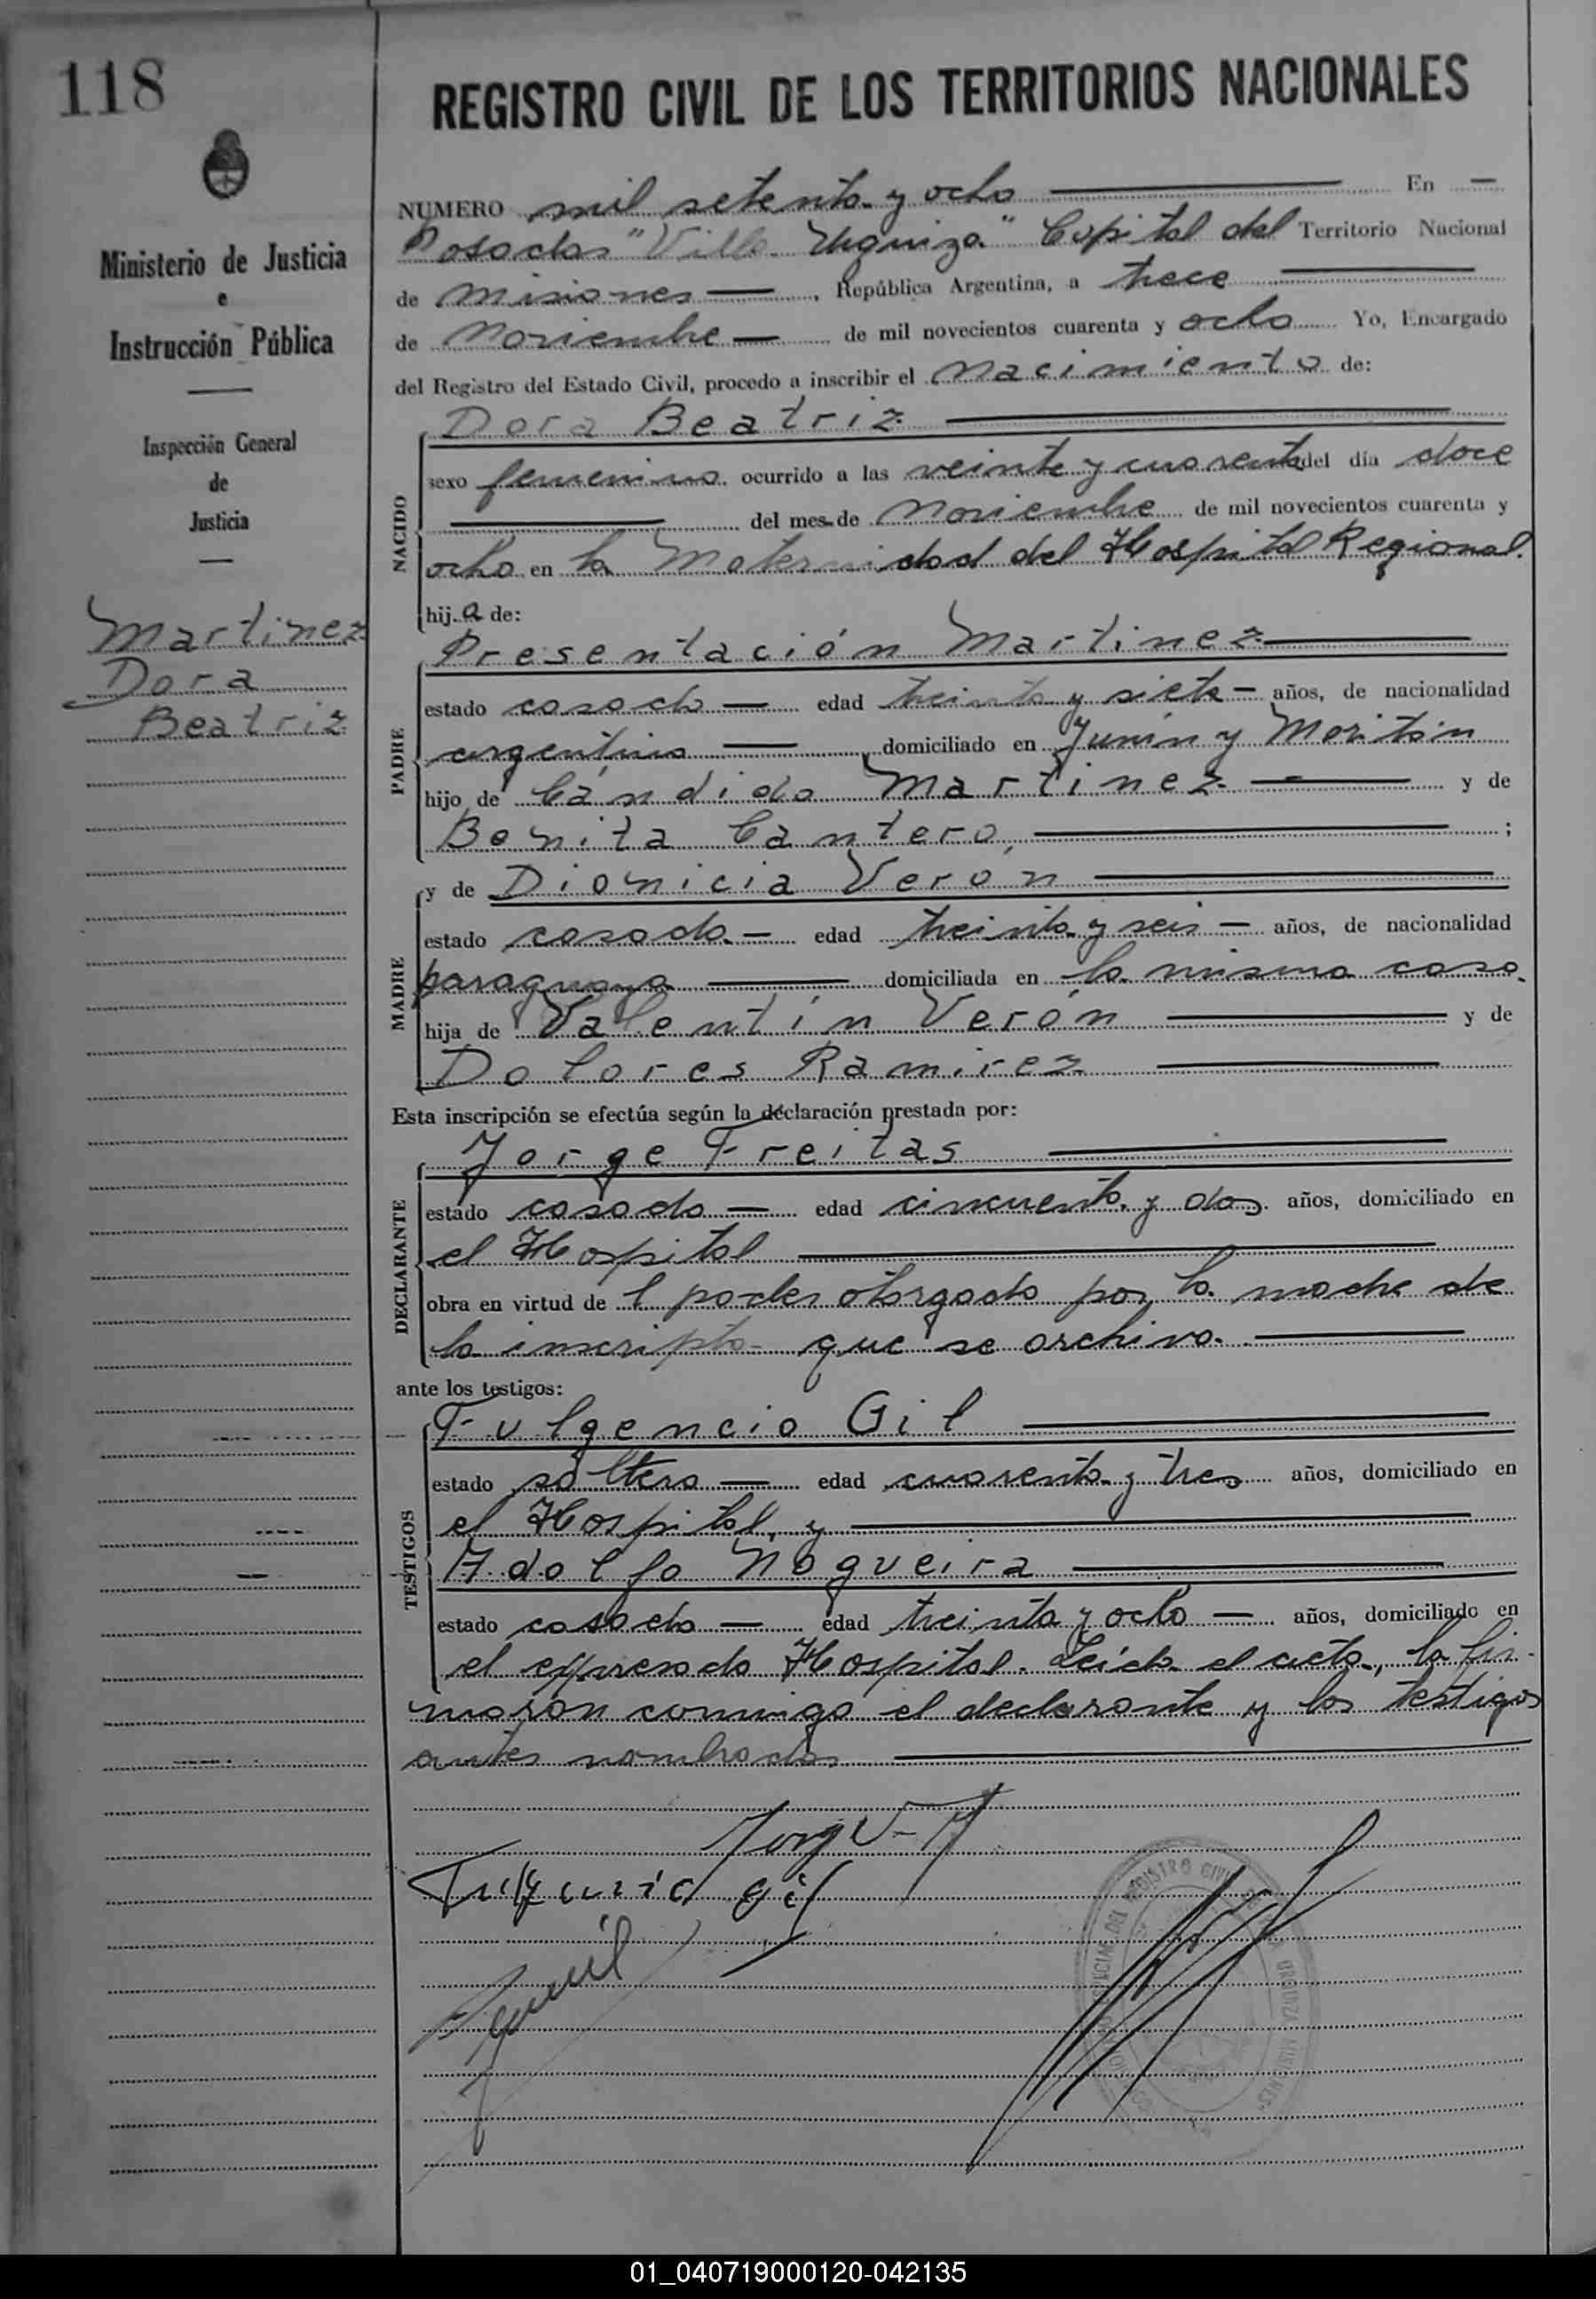 118
REGISTRO CIVIL DE LOS TERRITORIOS NACIONALES
Ministerio de Justicia
e
Instrucción Pública
Inspección General
de
Justicia
Martinez
Dora
Beatriz
NUMERO mil setenta y ocho — En —
Posadas "Villa Urquiza" Capital del Territorio Nacional
de Misiones —, República Argentina, a trece —
de Noviembre — de mil novecientos cuarenta y ocho Yo, Encargado
del Registro del Estado Civil, procedo a inscribir el Nacimiento de:
Dora Beatriz —
NACIDO
sexo femenino ocurrido a las veinte y cuarenta del día doce
— del mes de Noviembre de mil novecientos cuarenta y
ocho en la Maternidad del Hospital Regional.
hija de:
Presentación Martinez —
PADRE
estado casado — edad treinta y siete — años, de nacionalidad
argentino — domiciliado en Junín y
hijo de Cándido Martinez — y de
Benita Cantero, — ;
y de Dionicia Verón —
MADRE
estado casada — edad treinta y seis — años, de nacionalidad
paraguaya — domiciliada en la misma casa.
hija de Valentín Verón — y de
Dolores Ramirez —
Esta inscripción se efectúa según la declaración prestada por:
Jorge Freitas —
DECLARANTE
estado casado — edad cincuenta y dos años, domiciliado en
el Hospital —
obra en virtud del poder otorgado por la madre de
la inscripta que se archiva. —
ante los testigos:
Fulgencio Gil —
TESTIGOS
estado soltero — edad cuarenta y tres años, domiciliado en
el Hospital, y —
Adolfo Nogueira —
estado casado — edad treinta y ocho — años, domiciliado en
el expresado Hospital. Leída el acta, la fir-
maron conmigo el declarante y los testigos
antes nombrados —
Fulgencio Gil
01_040719000120-042135